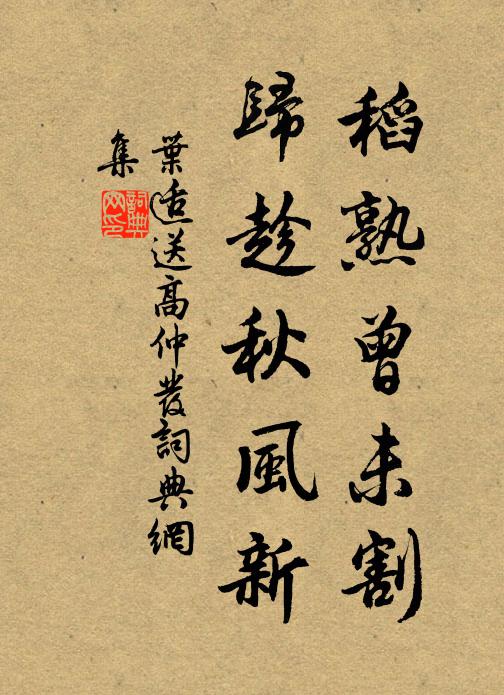 稻熟曾未割
歸趁秋風新
葉适送高仲發詞典網
集
詞典網印